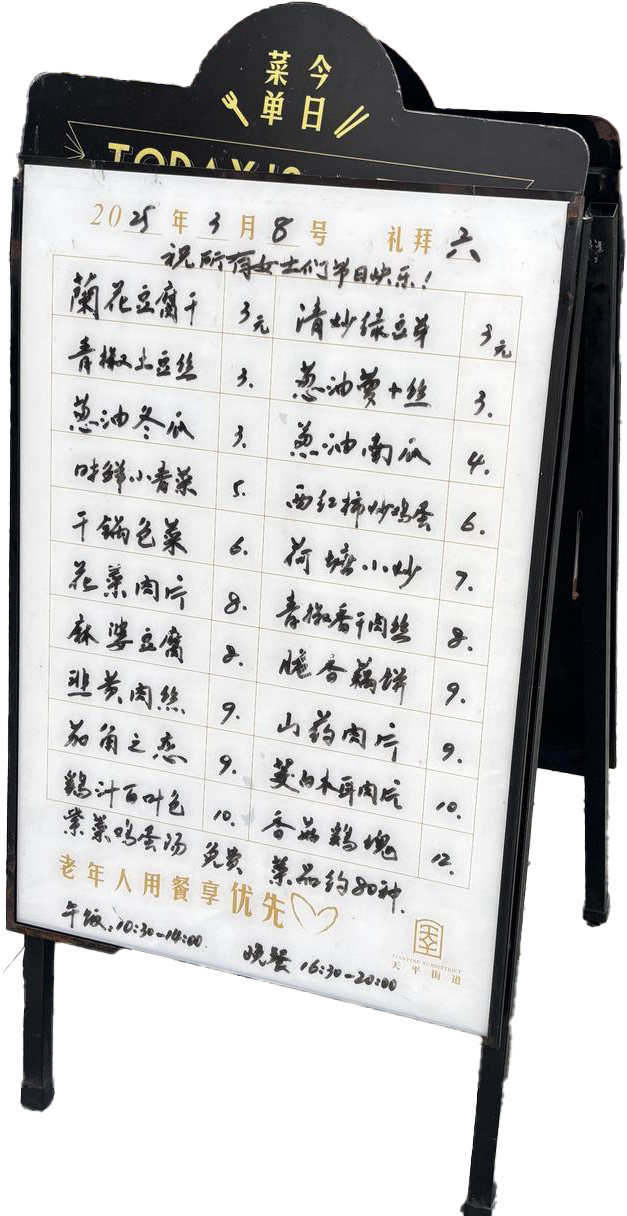 今日
菜单
TODAY'S
2025年3月8号 礼拜六
祝所有女士们节日快乐!
蘭花豆腐干 3元 清炒绿豆芽 3元
青椒土豆丝 3. 葱油萝卜丝 3.
葱油冬瓜 3. 葱油南瓜 4.
味鲜小青菜 5. 西红柿炒鸡蛋 6.
干锅包菜 6. 荷塘小炒 7.
花菜肉片 8. 青椒香干肉丝 8.
麻婆豆腐 8. 脆香藕饼 9.
韭黄肉丝 9. 山药肉片 9.
茄角之恋 9. 黄白木耳肉片 10.
鸡汁百叶包 10. 香菇鸡块 12.
紫菜鸡蛋汤 免费 菜品约80种.
老年人用餐享优先
午饭:10:30-14:00
晚餐 16:30-20:00
TIANPING SUBDISTRICT
天平街道